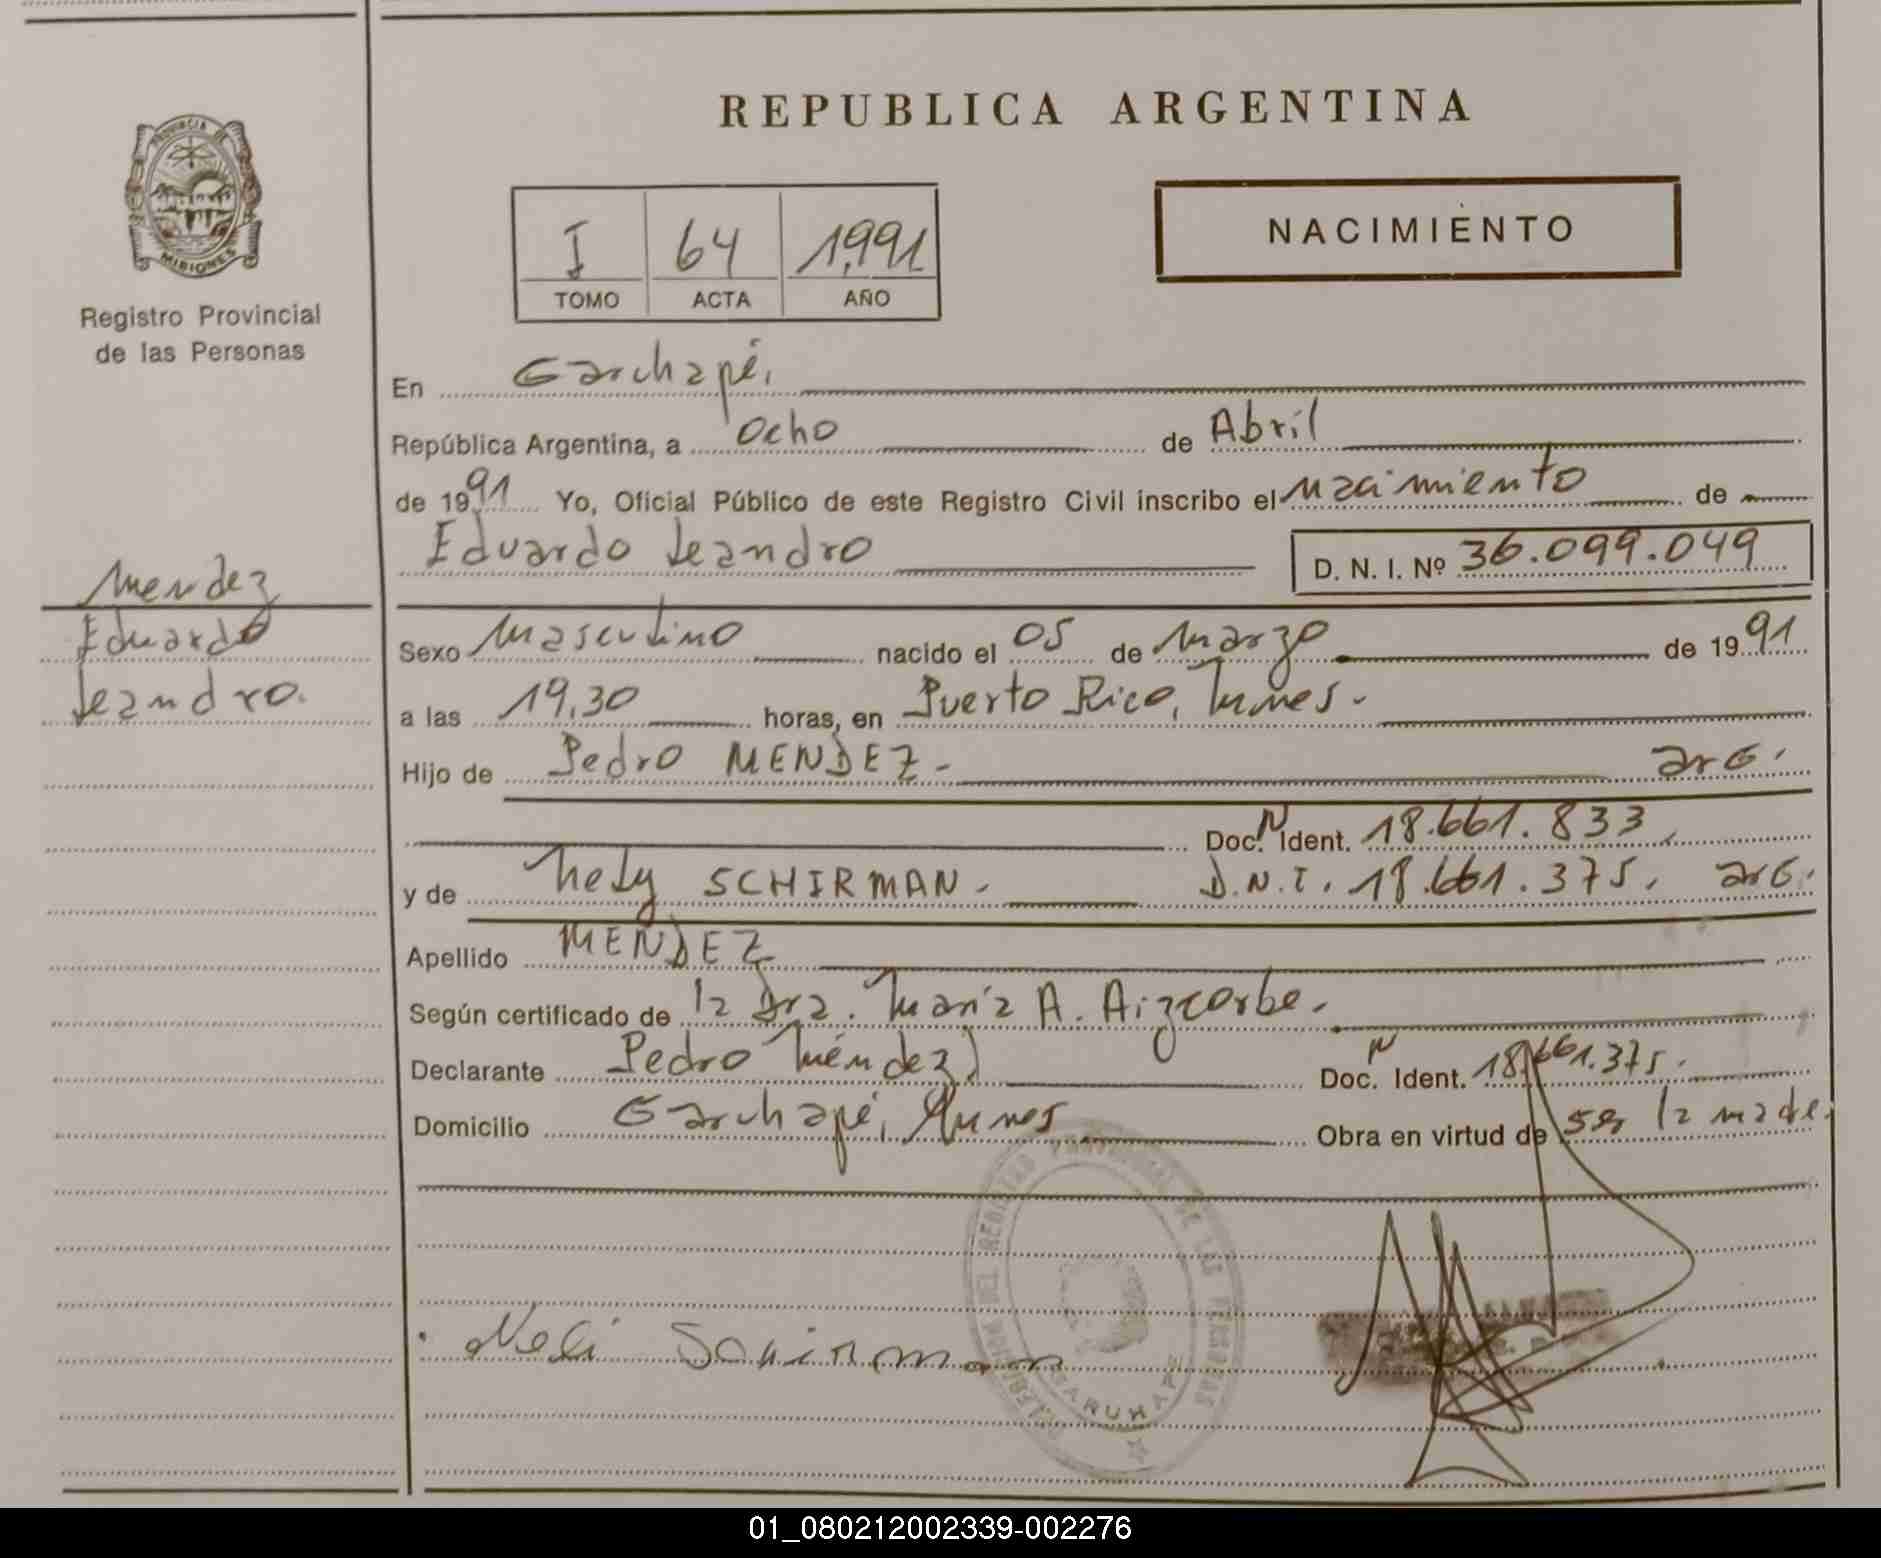 REPUBLICA ARGENTINA
PROVINCIA DE
MISIONES
Registro Provincial
de las Personas
NACIMIENTO
I 64 1,991
TOMO ACTA AÑO
En Garuhapé,
República Argentina, a Ocho de Abril
de 1991 Yo, Oficial Público de este Registro Civil inscribo el nacimiento de
Eduardo Leandro D. N. I. Nº 36.099.049
Mendez
Eduardo
Leandro.
Sexo Masculino nacido el 05 de Marzo de 1991
a las 19,30 horas, en Puerto Rico, Mnes.-
Hijo de Pedro MENDEZ.- arG.
Doc. N Ident. 18.661.833.
y de Nely SCHIRMAN.- D.N.I. 18.661.375. arG.
Apellido MENDEZ
Según certificado de la Dra. María A. Aizcorbe.-
Declarante Pedro Méndez) Doc. N Ident. 18.661.375.-
Domicilio Garuhapé, Mnes Obra en virtud de ser la madre.
Neli Schirman
REGISTRO PROVINCIAL DE LAS PERSONAS
GARUHAPE
01_080212002339-002276